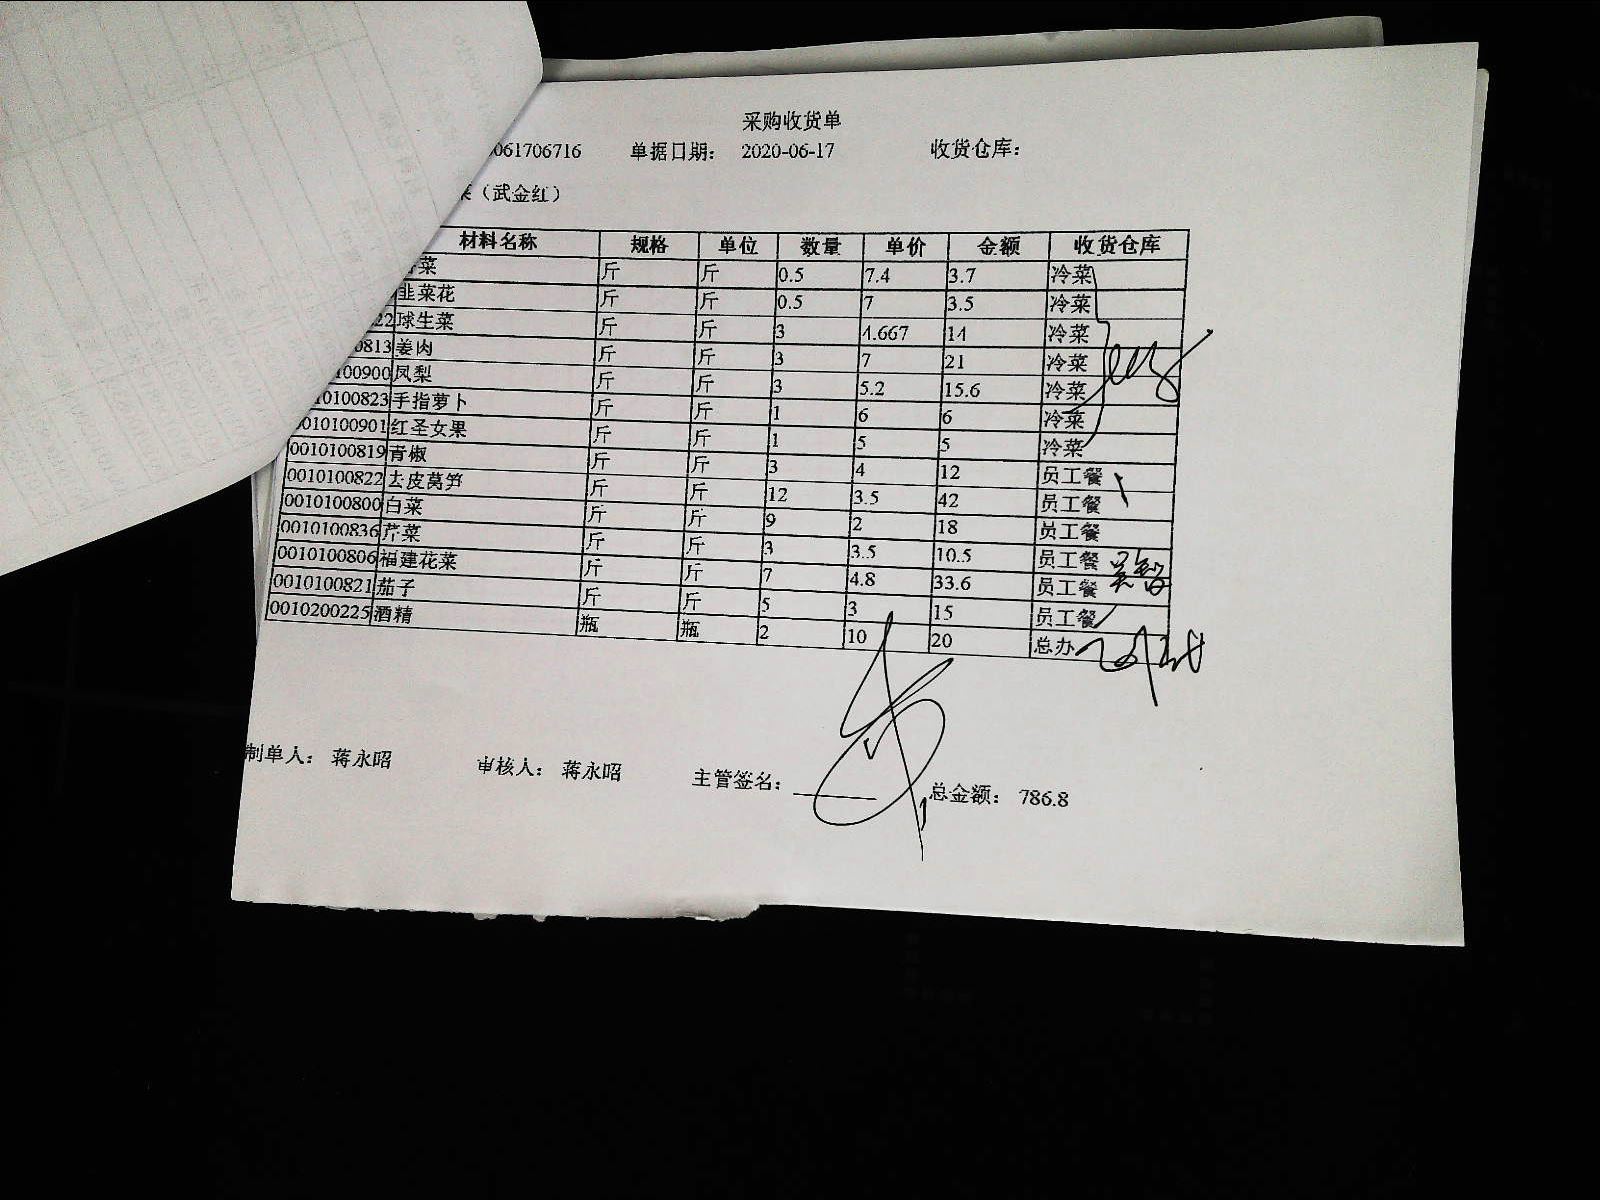 采购收货单
061706716 单据日期： 2020-06-17 收货仓库：
菜（武金红）
材料名称 规格 单位 数量 单价 金额 收货仓库
菜 斤 斤 0.5 7.4 3.7 冷菜
韭菜花 斤 斤 0.5 7 3.5 冷菜
22 球生菜 斤 斤 3 4.667 14 冷菜
0813 姜肉 斤 斤 3 7 21 冷菜
100900 凤梨 斤 斤 3 5.2 15.6 冷菜
10100823 手指萝卜 斤 斤 1 6 6 冷菜
0010100901 红圣女果 斤 斤 1 5 5 冷菜
0010100819 青椒 斤 斤 3 4 12 员工餐
0010100822 去皮莴笋 斤 斤 12 3.5 42 员工餐
0010100800 白菜 斤 斤 9 2 18 员工餐
0010100836 芹菜 斤 斤 3 3.5 10.5 员工餐
0010100806 福建花菜 斤 斤 7 4.8 33.6 员工餐
0010100821 茄子 斤 斤 5 3 15 员工餐
0010200225 酒精 瓶 瓶 2 10 20 总办
制单人： 蒋永昭 审核人： 蒋永昭 主管签名： 总金额： 786.8